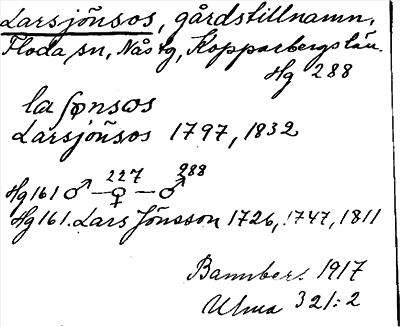 Larsjöñsos, gårdstillnamn,
Floda sn, Nås tg, Kopparbergs län.
Hg 288
laʃønsωs
Larsjöñsos 1797, 1832
227 288
Hg 161 ♂ – ♀ – ♂
Hg 161. Lars Jönsson 1726, 1747, 1811
Bannber. 1917
Ulma 321:2